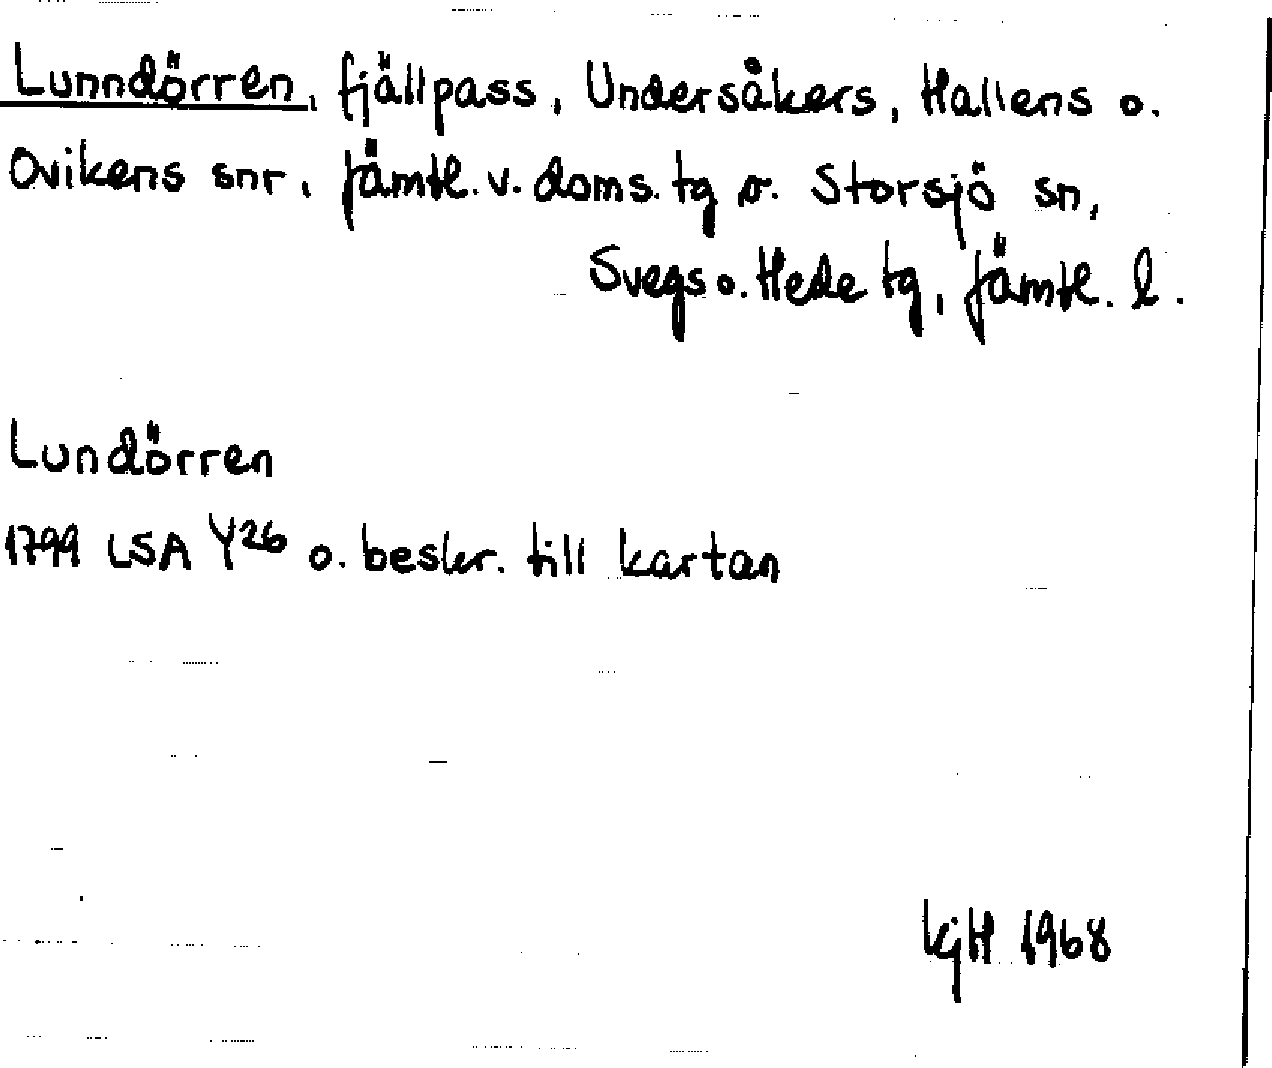 Lunndörren, fjällpass, Undersåkers, Hallens o.
Ovikens snr, Jämtl. v. doms. tg o. Storsjö sn,
Svegs o. Hede tg, Jämtl. l.
Lundörren
1799 LSA Y26 o. beskr. till kartan
KjH 1968